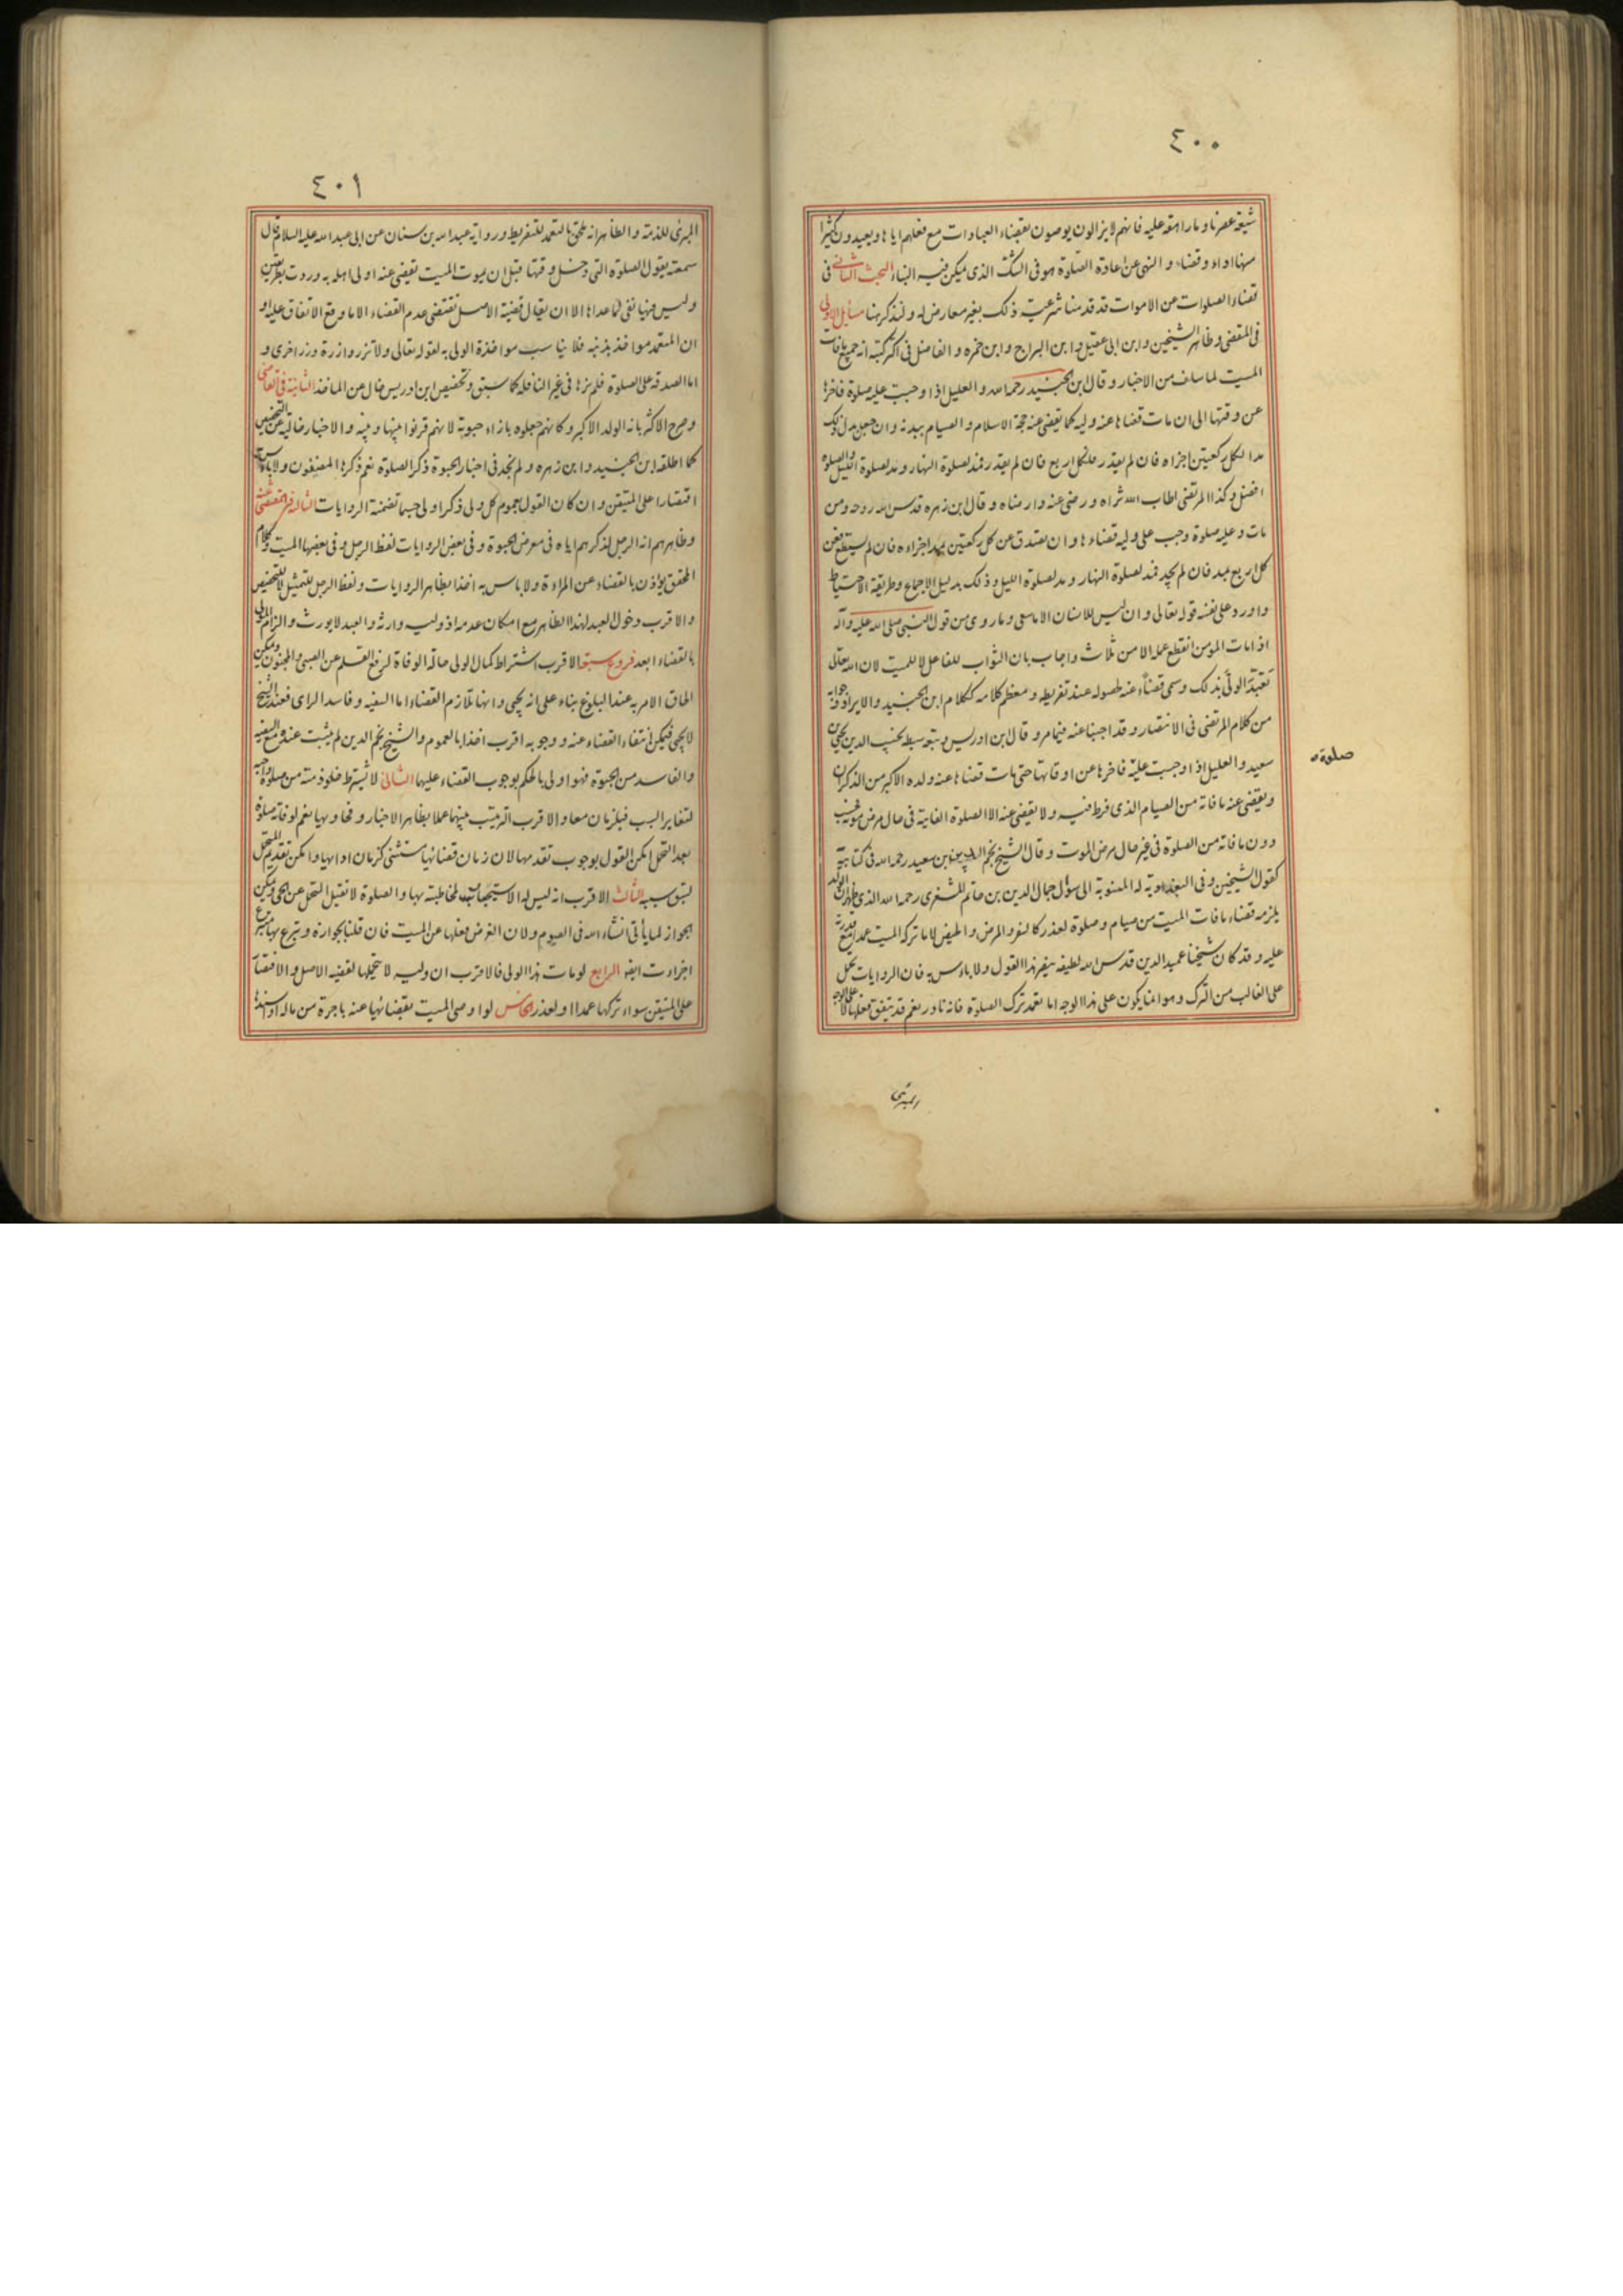 ٤٠٠
شيعة عصرنا وما راهقه عليه فانهم لا يزالون يوصون بقضاء العبادات مع فعلهم اياها ويعيدون كثيرا
منها اداء وقضاء والنهى عن اعادة الصلوة هو فى الشك الذى يمكن فيه البناء البحث الثانى فى
قضاء الصلوات عن الاموات قد قدمنا شرعية ذلك بغير معارض له ولنذكر هنا مسايل الاولى
فى المقضى وظاهر الشيخين وابن ابى عقيل وابن البراج وابن حمزه والفاضل فى اكثر كتبه انه جميع ما فات
الميت لما سلف من الاخبار وقال ابن الجنيد رحمه الله والعليل اذا وجبت عليه صلوة فاخرها
عن وقتها الى ان مات قضاها عنه وليه كما يقضى عنه حجة الاسلام والصيام ببدنه وان جعل بدل ذلك
مدا لكل ركعتين اجزاه فان لم يقدر فلكل اربع فان لم يقدر فمد لصلوة النهار ومد لصلوة الليل والصلوة
افضل وكذا المرتضى اطاب الله ثراه ورضى عنه وارضاه وقال ابن زهره قدس الله روحه ومن
مات وعليه صلوة وجب على وليه قضاءها وان تصدق عن كل ركعتين بمد اجزاءه فان لم يستطع فعن
كل اربع بمد فان لم يجد فمد لصلوة النهار ومد لصلوة الليل وذلك بدليل الاجماع وطريقة الاحتياط
واورد على نفسه قوله تعالى وان ليس للانسان الا ما سعى وما روى من قول النبى صلى الله عليه وآله
اذا مات المومن انقطع عمله الا من ثلاث واجاب بان الثواب للفاعل لا للميت لان الله تعالى
تعبد الولى بذلك وسمى قضاء عنه لحصوله عند تفريطه ومعظم كلامه ككلام ابن الجنيد والايراد وجوابه
من كلام المرتضى فى الانتصار وقد اجبنا عنه فيما مر وقال ابن ادريس وتبعه سبطه نجيب الدين يحيى بن
سعيد والعليل اذا وجبت عليه فاخرها عن اوقاتها حتى مات قضاها عنه ولده الاكبر من الذكران
صلوة
ويقضى عنه ما فاته من الصيام الذى فرط فيه ولا يقضى عنه الا الصلوة الفايتة فى حال مرض موته فحسب
دون ما فاته من الصلوة فى غير حال مرض الموت وقال الشيخ نجم الدين بن سعيد رحمه الله فى كتابيه
كقول الشيخين وفى البغدادية له المنسوبة الى سوال جمال الدين بن حاتم المشغرى رحمه الله الذى ظهر ان الولد
يلزمه قضاء ما فات الميت من صيام وصلوة لعذر كالسفر والمرض والحيض لا ما تركه الميت عمدا مع قدرته
عليه وقد كان شيخنا عميد الدين قدس الله لطيفه ينصر هذا القول ولا باس به فان الروايات تحمل
على الغالب من الترك وهو انما يكون على هذا الوجه اما تعمد ترك الصلوة فانه نادر نعم قد يتفق فعلها لا على الوجه
المبرئ
٤٠١
المبرئ للذمة والظاهر انه ملحق بالتعمد للتفريط ورواية عبد الله بن سنان عن ابى عبد الله عليه السلام قال
سمعته يقول الصلوة التى دخل وقتها قبل ان يموت الميت يقضى عنه اولى اهله به وردت بطريقين
وليس فيها نفى لما عداها الا ان يقال قضية الاصل تقتضى عدم القضاء الا ما وقع الاتفاق عليه او
ان المتعمد مواخذ بذنبه فلا يناسب مواخذة الولى به لقوله تعالى ولا تزر وازرة وزر اخرى و
اما الصدقة على الصلوة فلم نرها فى غير النافلة كما سبق وتخصيص ابن ادريس خال عن الماخذ الثانية فى القاضى
وصرح الاكثر بانه الولد الاكبر وكانهم جعلوه بازاء حبوته لانهم قرنوا بينها وبينه والاخبار خالية عن التخصيص
كما اطلقه ابن الجنيد وابن زهره ولم نجد فى اخبار الحبوة ذكر الصلوة نعم ذكرها المصنفون ولا باس به
اقتصارا على المتيقن وان كان القول بعموم كل ولى ذكرا ولى حسبما تضمنته الروايات الثالثة فى المقضى عنه
وظاهرهم انه الرجل لذكرهم اياه فى معرض الحبوة وفى بعض الروايات لفظ الرجل وفى بعضها الميت وكلام
المحقق يؤذن بالقضاء عن المراءة ولا باس به اخذا بظاهر الروايات ولفظ الرجل للتمثيل لا للتخصيص
والاقرب دخول العبد لهذا الظاهر مع امكان عدمه اذ وليه وارثه والعبد لا يورث والزام المولى
بالقضاء ابعد فروع سبعة الاقرب اشتراط كمال الولى حالة الوفاة لرفع القلم عن الصبى والمجنون ويمكن
الحاق الامر به عند البلوغ بناء على انه يحبى وانها تلازم القضاء اما السفيه وفاسد الراى فعند الشيخ
لا يحبى فيمكن انتفاء القضاء عنه ووجوبه اقرب اخذا بالعموم والشيخ نجم الدين لم يثبت عنده منع السفيه
والفاسد من الحبوة فهو اولى بالحكم بوجوب القضاء عليهما الثانى لا يشترط خلو ذمته من صلوة واجبة
لتغاير السبب فيلزمان معا والاقرب الترتيب بينهما عملا بظاهر الاخبار وفحاويها نعم لو فاتته صلوة
بعد التحمل امكن القول بوجوب تقدمها لان زمان قضائها مستثنى كزمان ادائها وامكن تقديم المتحمل
لسبق سببه الثالث الاقرب انه ليس له الاستيجار لمخاطبته بها والصلوة لا تقبل التحمل عن الحى ويمكن
الجواز لما يأتى انشاء الله فى الصيوم ولان الغرض فعلها عن الميت فان قلنا بجوازه وتبرع بها متبرع
اجزاءت ايضا الرابع لو مات هذا الولى فالاقرب ان وليه لا يتحملها لقضية الاصل والاقتصار
على المتيقن سواء تركها عمدا او لعذر الخامس لو اوصى الميت بقضائها عنه باجرة من ماله او اسندها